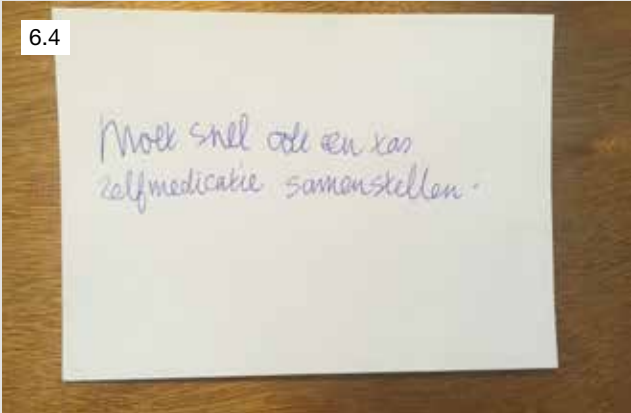 6.4
Moet snel ook een kas
zelfmedicatie samenstellen.